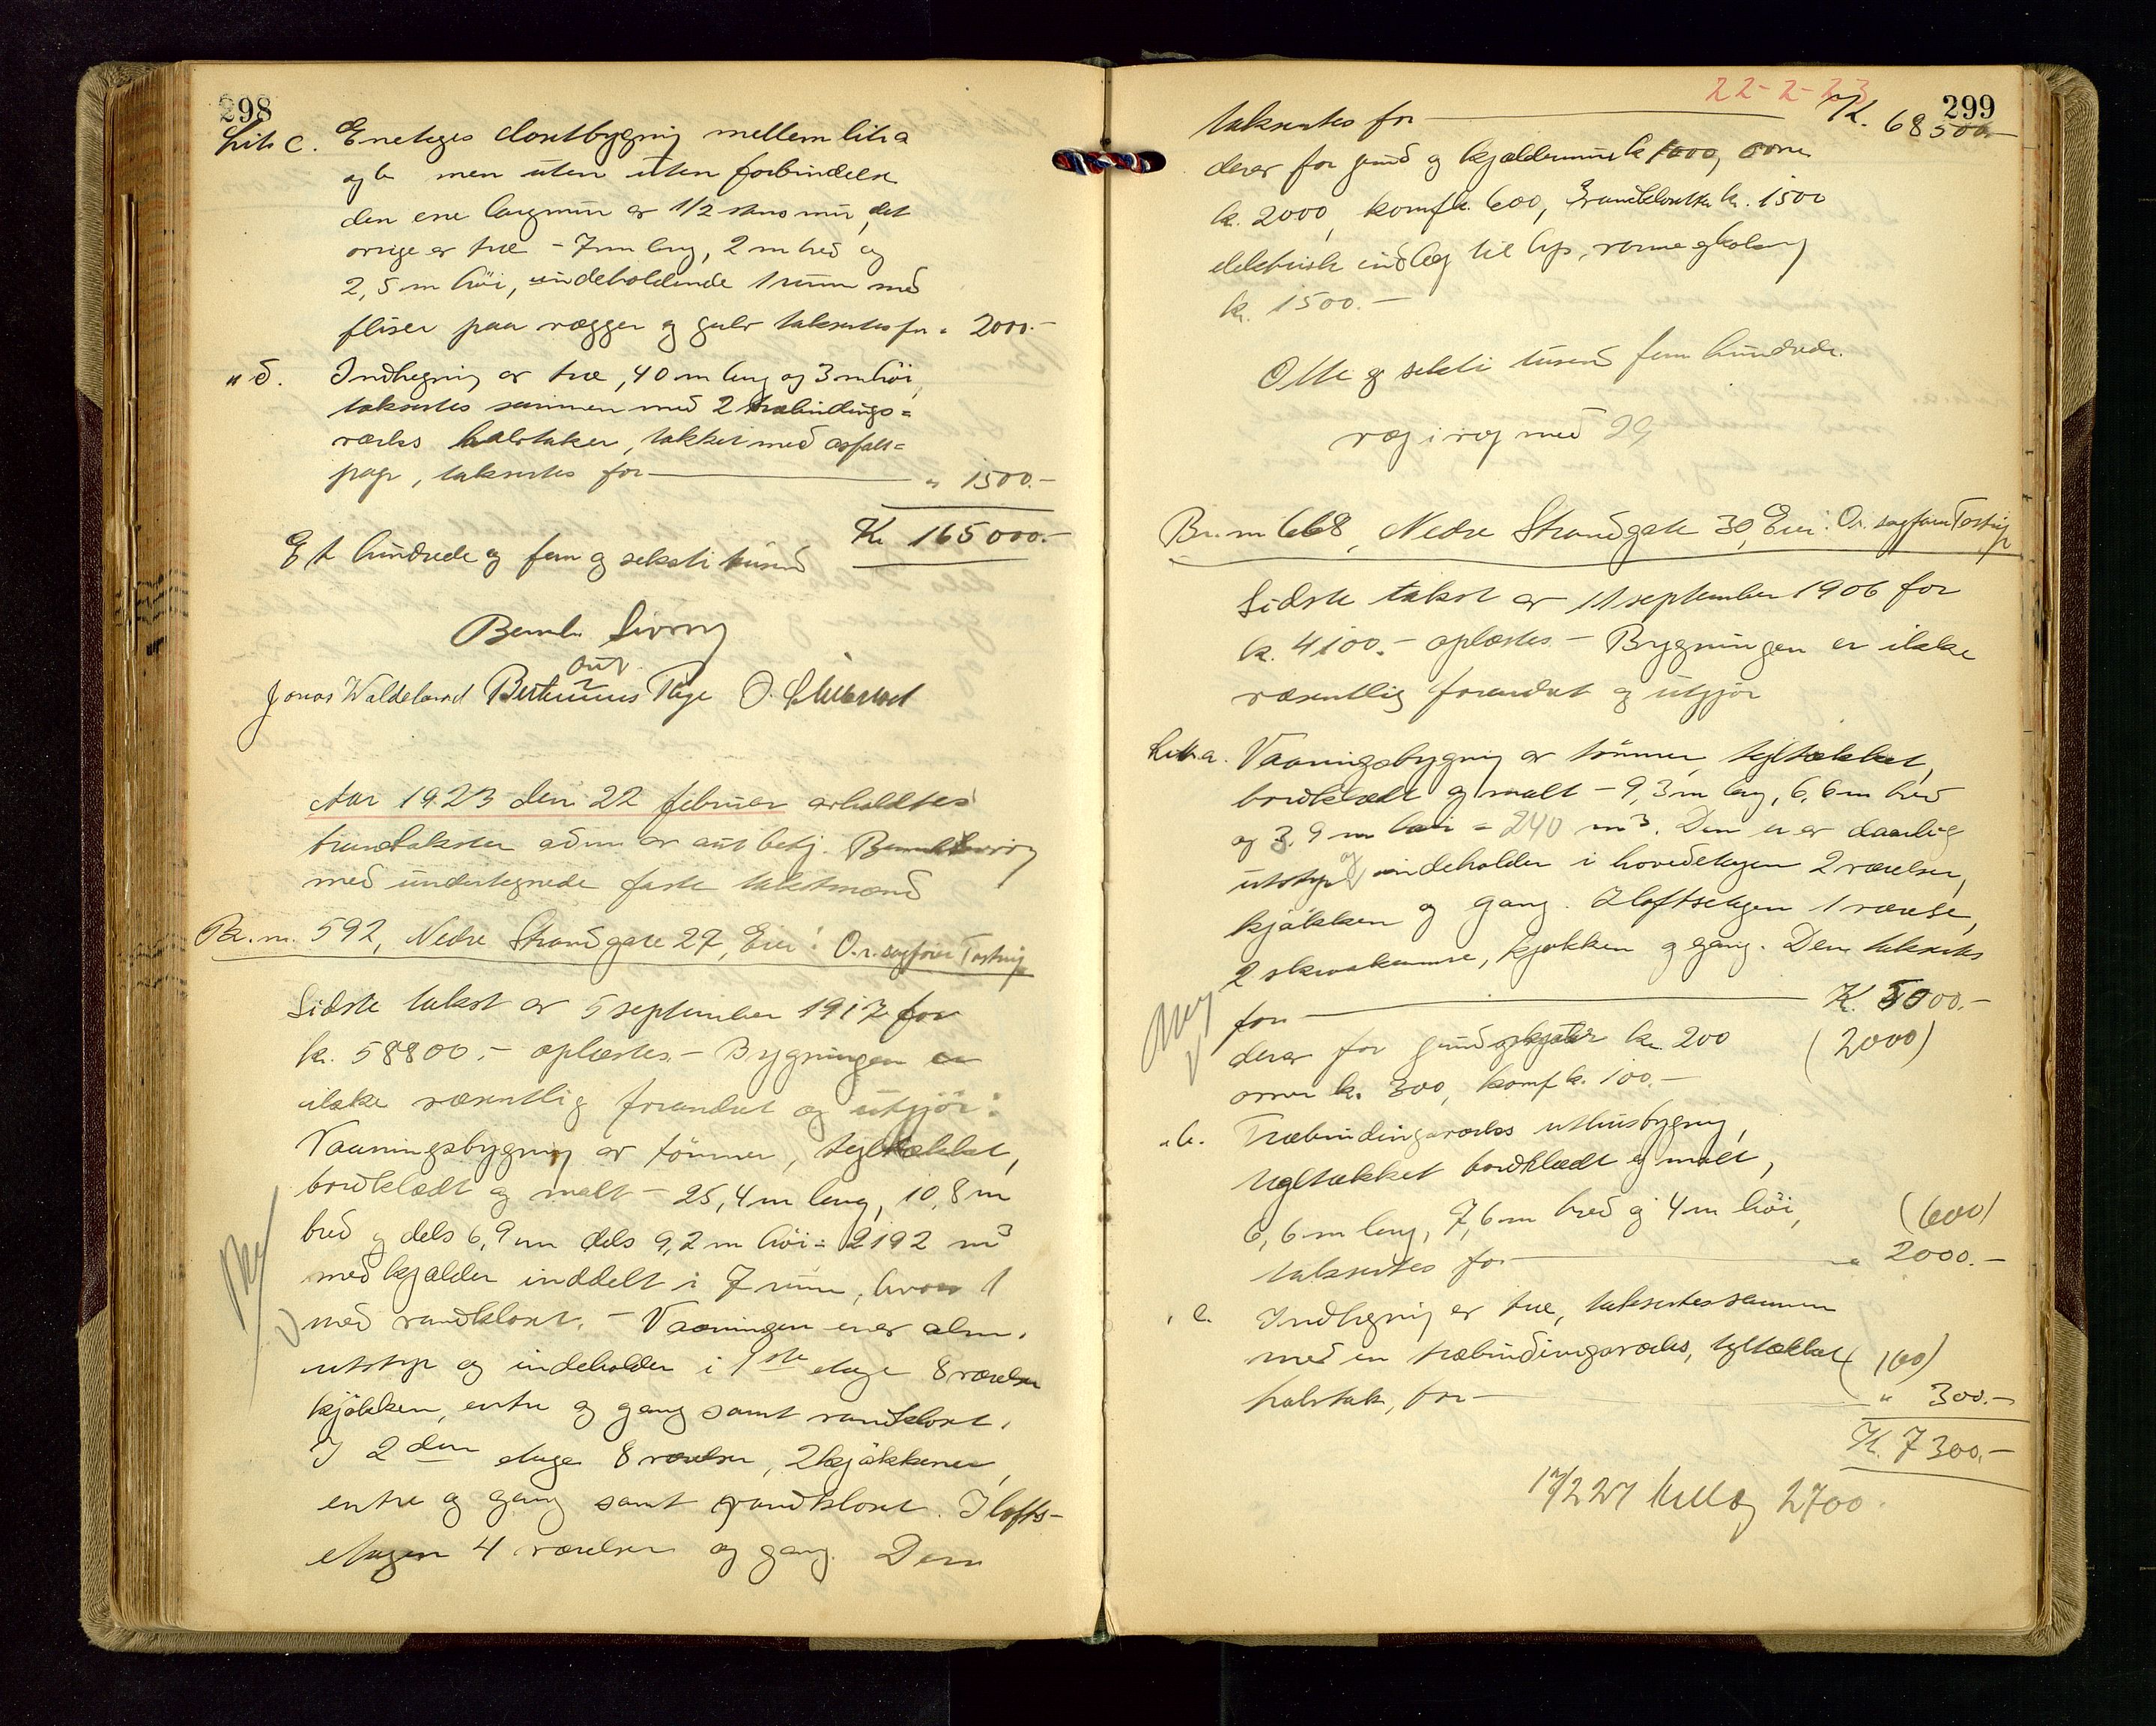 298
Lit. c. Enetages closetbygning mellem lit. a
og b men uten uten forbindelse
den ene langmur er 1/2 stens mur, det
øvrige er træ - 7 m lang, 2 m bred og
2,5 m høi, indeholdende 1 rum med
fliser paa vægger og gulv takseres for " 2000.-
" d. Indhegning av træ, 40 m lang og 3 m høi,
takseres sammen med 2 træbindings=
verks halvtaker, tækket med asfalt=
pap, takseres for " 1500.-
Kr. 165000.-
Et hundrede og fem og seksti tusend
Jonas Waldeland O.
Aar 1923 den 22 februar avholdtes
branntakster adm. av aut betj.
med undertegnede faste takstmænd
Br. nr. 592, Nedre Strandgate 27, Eier: O.r. sagfører Tastrup
Sidste takst av 5 september 1917 for
k. 58800.- oplæstes. - Bygningen er
ikke væsentlig forandret og utgjør:
Vaaningsbygning av tømmer, tegltækket,
bordklædt og malt - 25,4 m lang, 10,8 m
bred og dels 6,9 m dels 9,2 m høi = 2192 m³
med kjælder inddelt i 7 rum, hvorav 1
med vandkloset. - Vaaningen er av alm.
utstyr og indeholder i 1ste etage 8 værelser
kjøkken, entre og gang samt vandkloset.
I 2den etage 8 værelser, 2 kjøkkener,
entre og gang samt vandkloset. I lofts-
etagen 4 værelser og gang. Den
22-2-23
299
takseres for Kr. 68500.-
derav for grund og kjældermur k. 1000, ovne
k. 2000, komf k. 600, vandklosetter k. 1500
elektrisk indlæg til lys, varme og kokning
k. 1500.-
Otte og seksti tusend fem hundrede.
væg i væg med 29
Br. nr. 668, Nedre Strandgate 30, Eier: O.r. sagfører Tastrup
Sidste takst av 11 september 1906 for
k. 4100.- oplæstes - Bygningen er ikke
væsentlig forandret og utgjør
Lit. a. Vaaningsbygning av tømmer, tegltækket,
bordklædt og malt - 9,3 m lang, 6,6 m bred
og 3,9 m høi = 240 m³. Den er av daarlig
utstyr og indeholder i hovedetagen 2 værelser,
kjøkken og gang. I loftsetagen 1 værelse,
2 skraakamre, kjøkken og gang. Den takseres
for K. 5000.-
derav for grund og kjælder k. 200 (2000)
ovner k. 300, komf k. 100.-
" b. Træbindingsverks uthusbygning,
tegltækket bordklædt og malt,
6,6 m lang, 7,6 m bred og 4 m høi, (600)
takseres for " 2000.-
" c. Indhegning av træ, takseres sammen
med en træbindingsverks, tegltækket (100)
halvtak, for " 300.-
K. 7300.-
17/2 27 tillæg 2700.